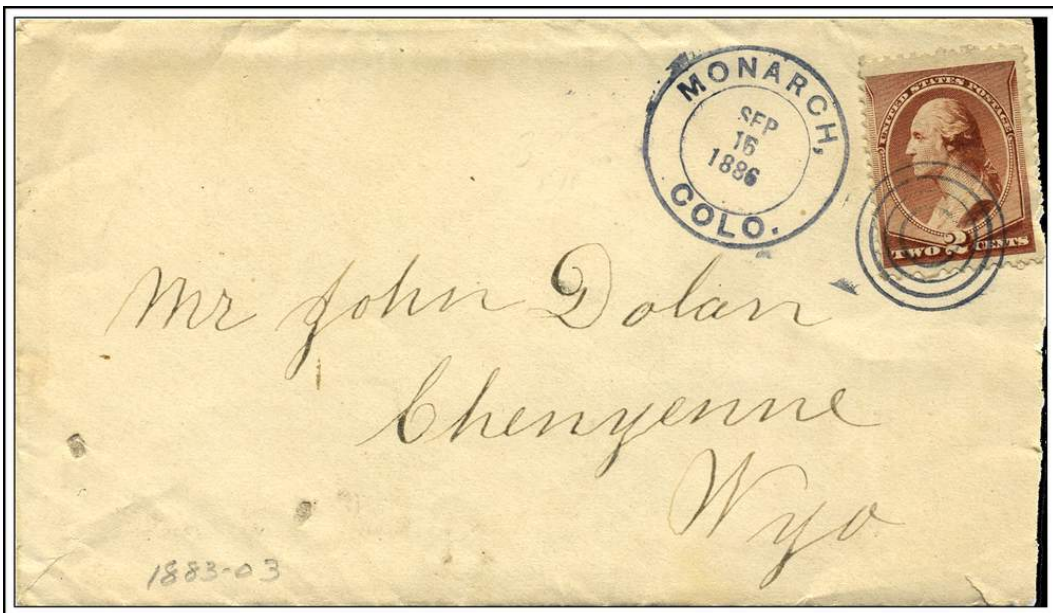 MONARCH,
SEP
16
1886
COLO.
UNITED STATES POSTAGE
TWO 2 CENTS
Mr John Dolan
Chenyenne
Wyo
1883-03